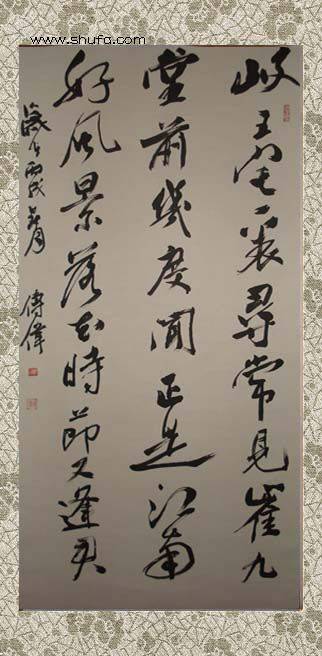 www.shufa.com
岐王宅裏尋常見崔九
堂前幾度聞正是江南
好風景落花時節又逢君
歲 丙戌 月 傅偉